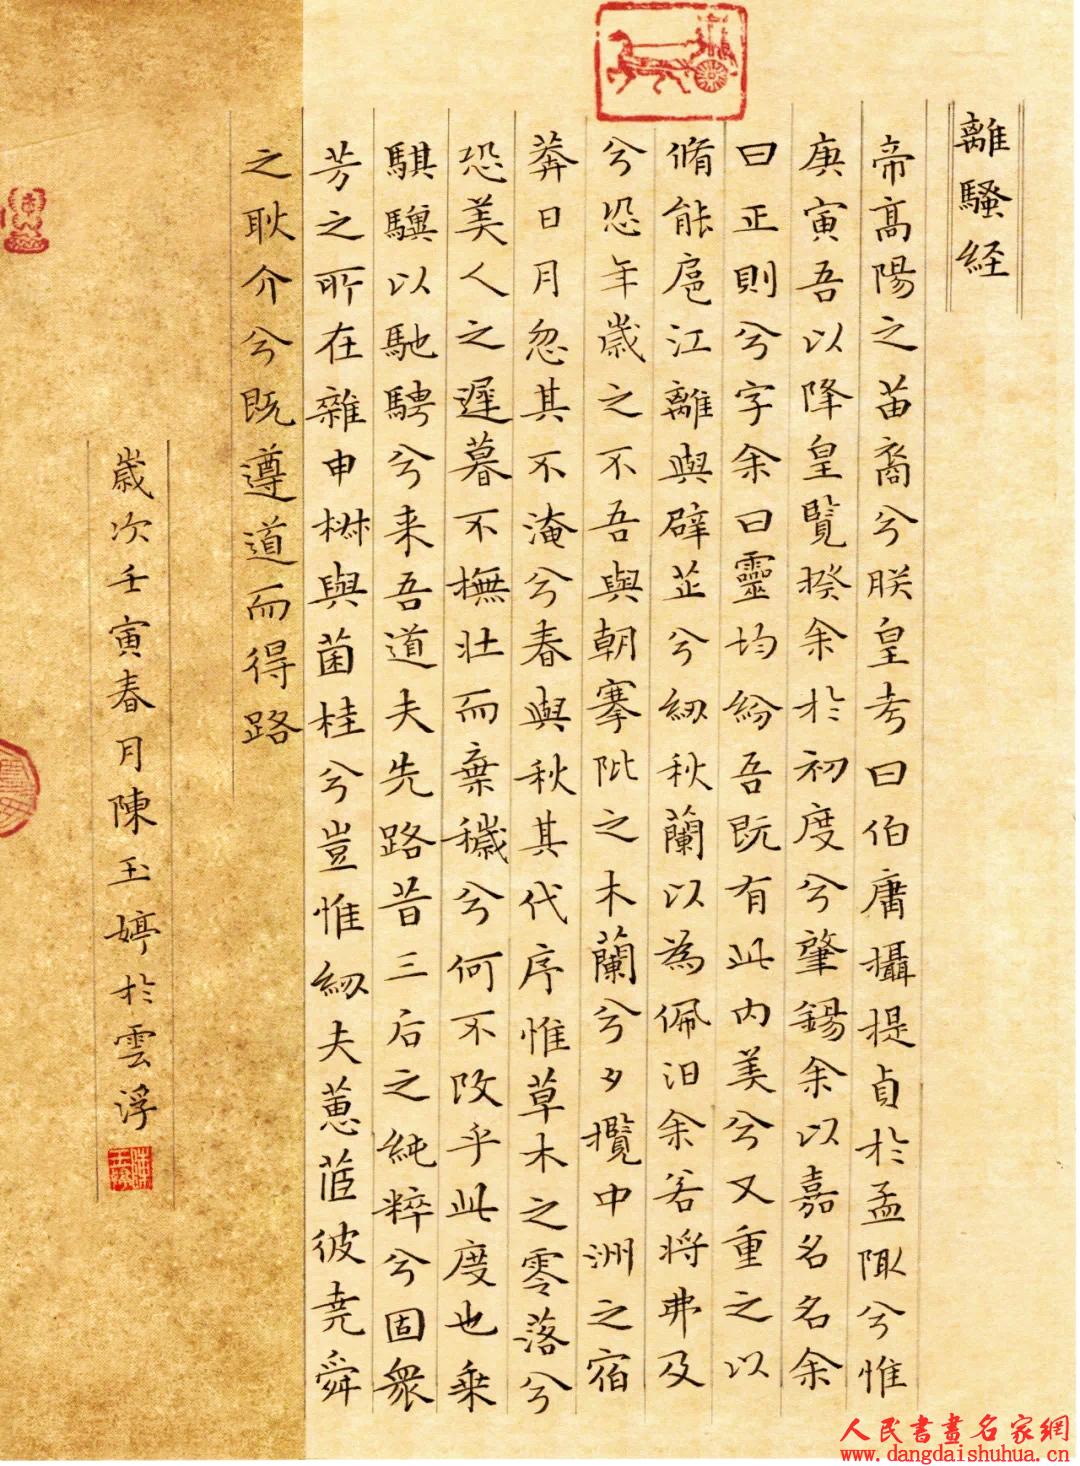 離騷経
帝髙陽之苗裔兮朕皇考曰伯庸攝提貞於孟陬兮惟
庚寅吾以降皇覽揆余於初度兮肇錫余以嘉名名余
曰正則兮字余曰靈均紛吾既有此内美兮又重之以
脩能扈江離與辟芷兮紉秋蘭以為佩汨余若將弗及
兮恐年歲之不吾與朝搴阰之木蘭兮夕攬中洲之宿
莽日月忽其不淹兮春與秋其代序惟草木之零落兮
恐美人之遲暮不撫壯而棄穢兮何不改乎此度也乗
騏驥以馳騁兮来吾道夫先路昔三后之純粹兮固衆
芳之所在雜申椒與菌桂兮豈惟紉夫蕙茝彼堯舜
之耿介兮既遵道而得路
歲次壬寅春月陳玉婷於雲浮
人民書畫名家網
www.dangdaishuhua.cn